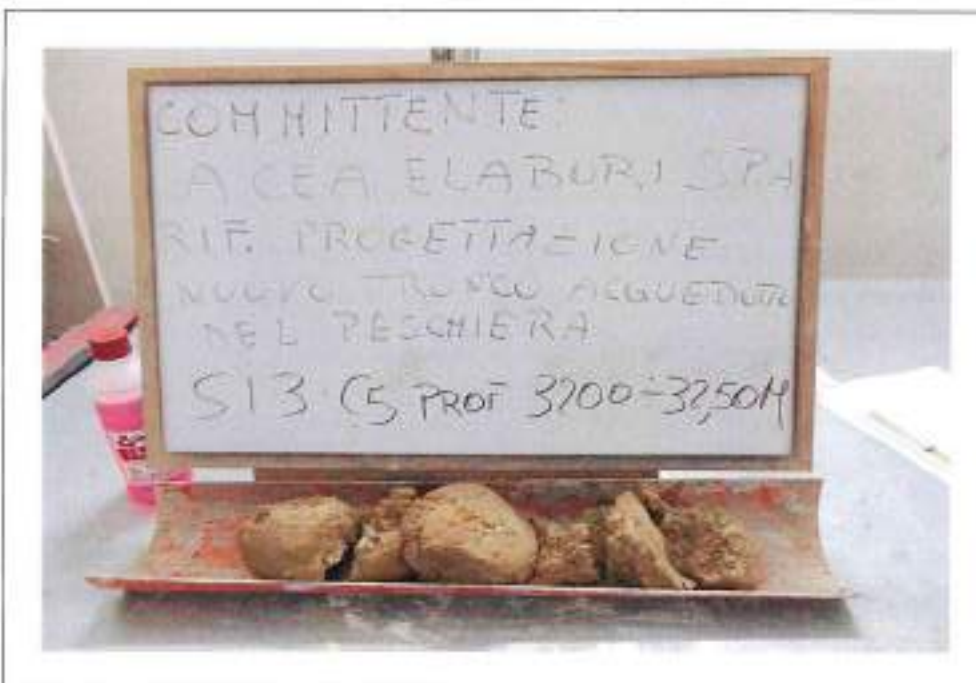 COMMITTENTE:
ACEA ELABORI SPA
RIF. PROGETTAZIONE
NUOVO TRONCO ACQUEDOTTO
DEL PESCHIERA
S13 C5 PROF 3200÷32,50M